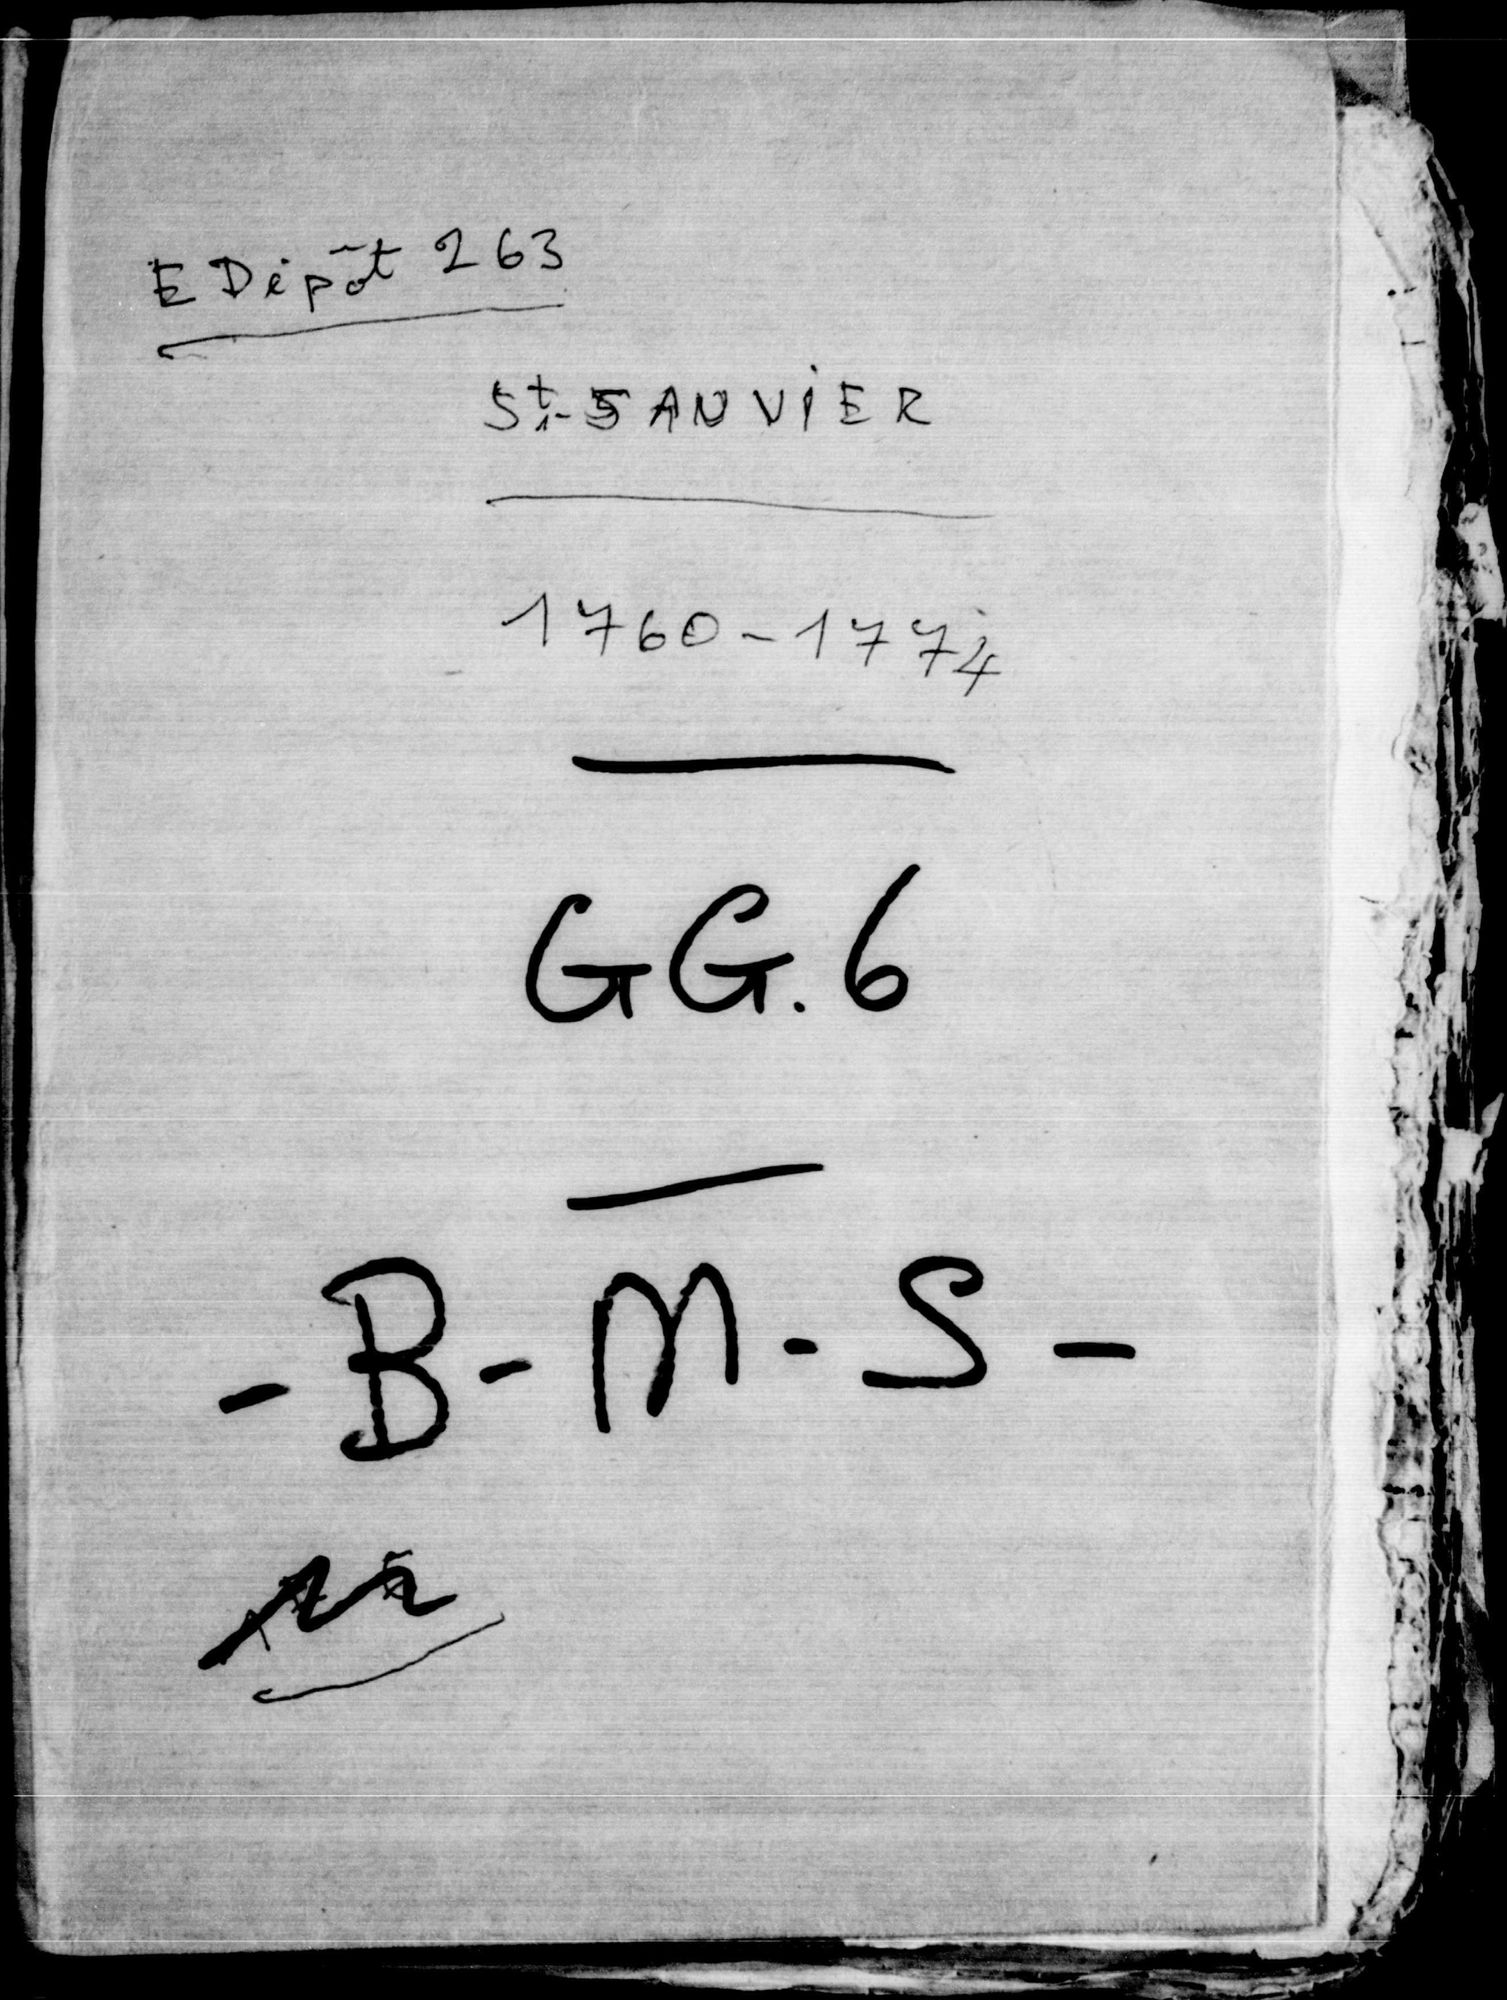 E Dépôt 263
St-SANVIER
1760-1774
GG.6
-B-M-S-